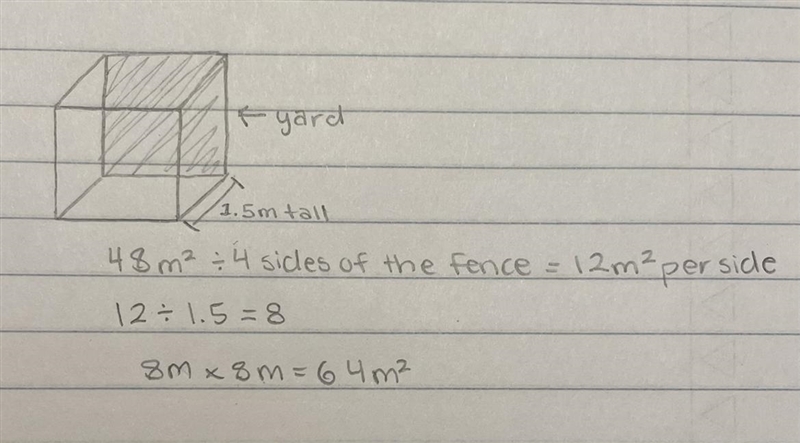 ← yard
1.5m tall
48m² ÷ 4 sides of the fence = 12m² per side
12 ÷ 1.5 = 8
8m × 8m = 64m²